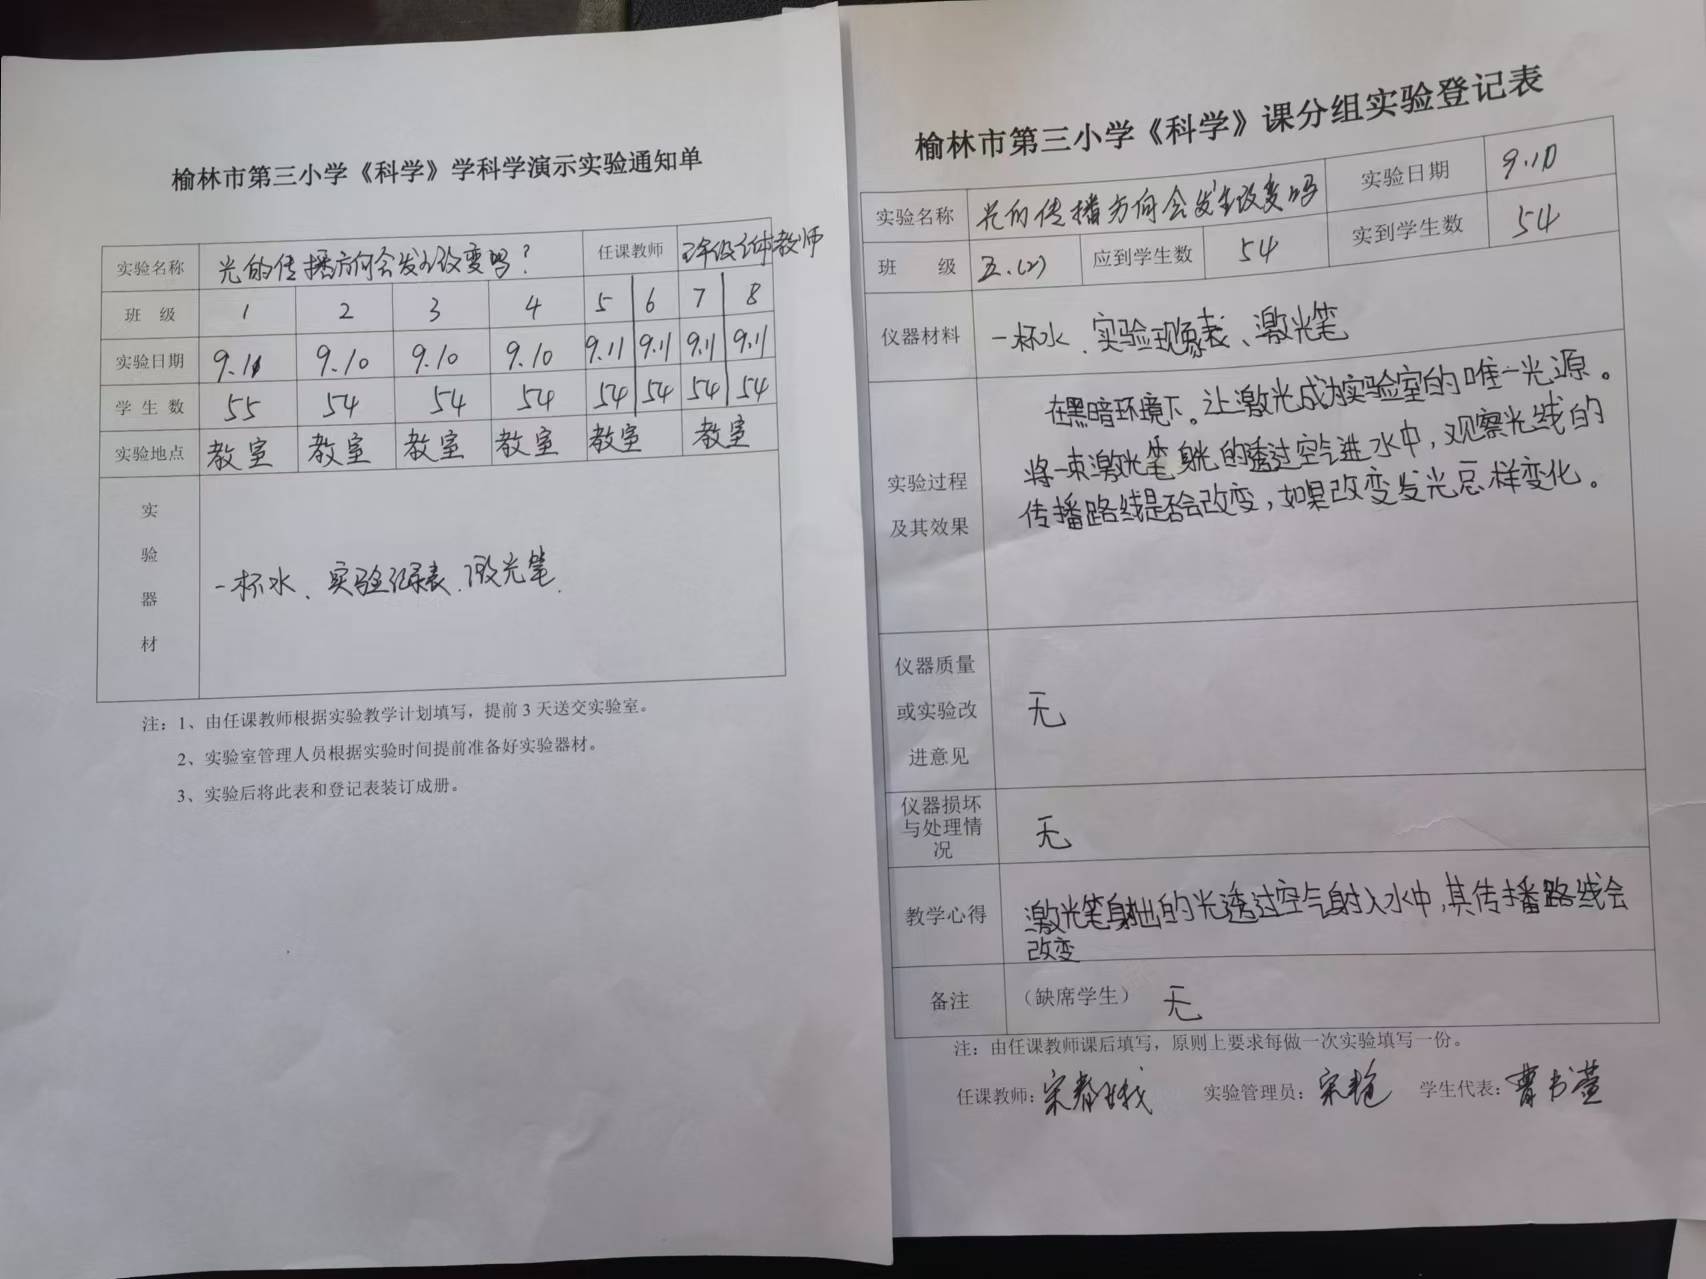 榆林市第三小学《科学》学科学演示实验通知单
实验名称 光的传播方向会发生改变吗? 任课教师 五年级全体教师
班 级 1 2 3 4 5 6 7 8
实验日期 9.10 9.10 9.10 9.11 9.11 9.11 9.11
学生数 55 54 54 54 54 54 54 54
实验地点 教室 教室 教室 教室 教室 教室
实
验
器
材
一杯水、实验记录表、激光笔.
注：1、由任课教师根据实验教学计划填写，提前3天送交实验室。
2、实验室管理人员根据实验时间提前准备好实验器材。
3、实验后将此表和登记表装订成册。
榆林市第三小学《科学》课分组实验登记表
实验名称 光的传播方向会发生改变吗 实验日期 9.10
班 级 五.(2) 应到学生数 54 实到学生数 54
仪器材料 一杯水、实验现象表、激光笔
实验过程
及其效果
在黑暗环境下。让激光成为实验室的唯一光源。
将一束激光笔射光的透过空气进水中，观察光线的
传播路线是否会改变，如果改变发光怎样变化。
仪器质量
或实验改
进意见
无
仪器损坏
与处理情
况
无
教学心得 激光笔射出的光透过空气射入水中，其传播路线会
改变
备注 （缺席学生） 无
注：由任课教师课后填写，原则上要求每做一次实验填写一份。
任课教师: 宋 实验管理员: 宋艳 学生代表: 曹书萱